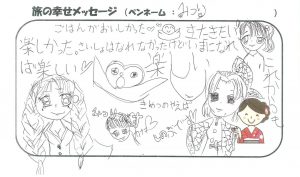 旅の幸せメッセージ (ペンネーム : みつき )
ごはんがおいしかった
またきたい
楽しかった。さいしょはなれなかったけどいまになれ
ば楽しい
楽しい
これから
きめつのやいば